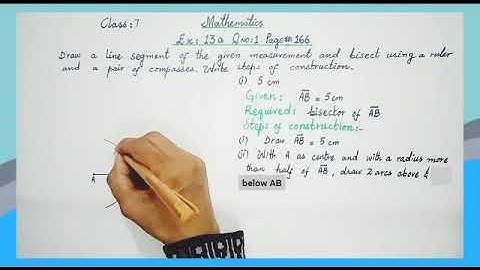 Class: 7
Mathematics
Ex: 13a Q no:1 Page# 166
Draw a line segment of the given measurement and bisect using a ruler
and a pair of compasses. Write steps of construction.
(i) 5 cm
Given: AB = 5 cm
Required: bisector of AB
Steps of construction:-
(i) Draw AB = 5 cm
(ii) With A as centre and with a radius more
than half of AB, draw 2 arcs above &
below AB
A